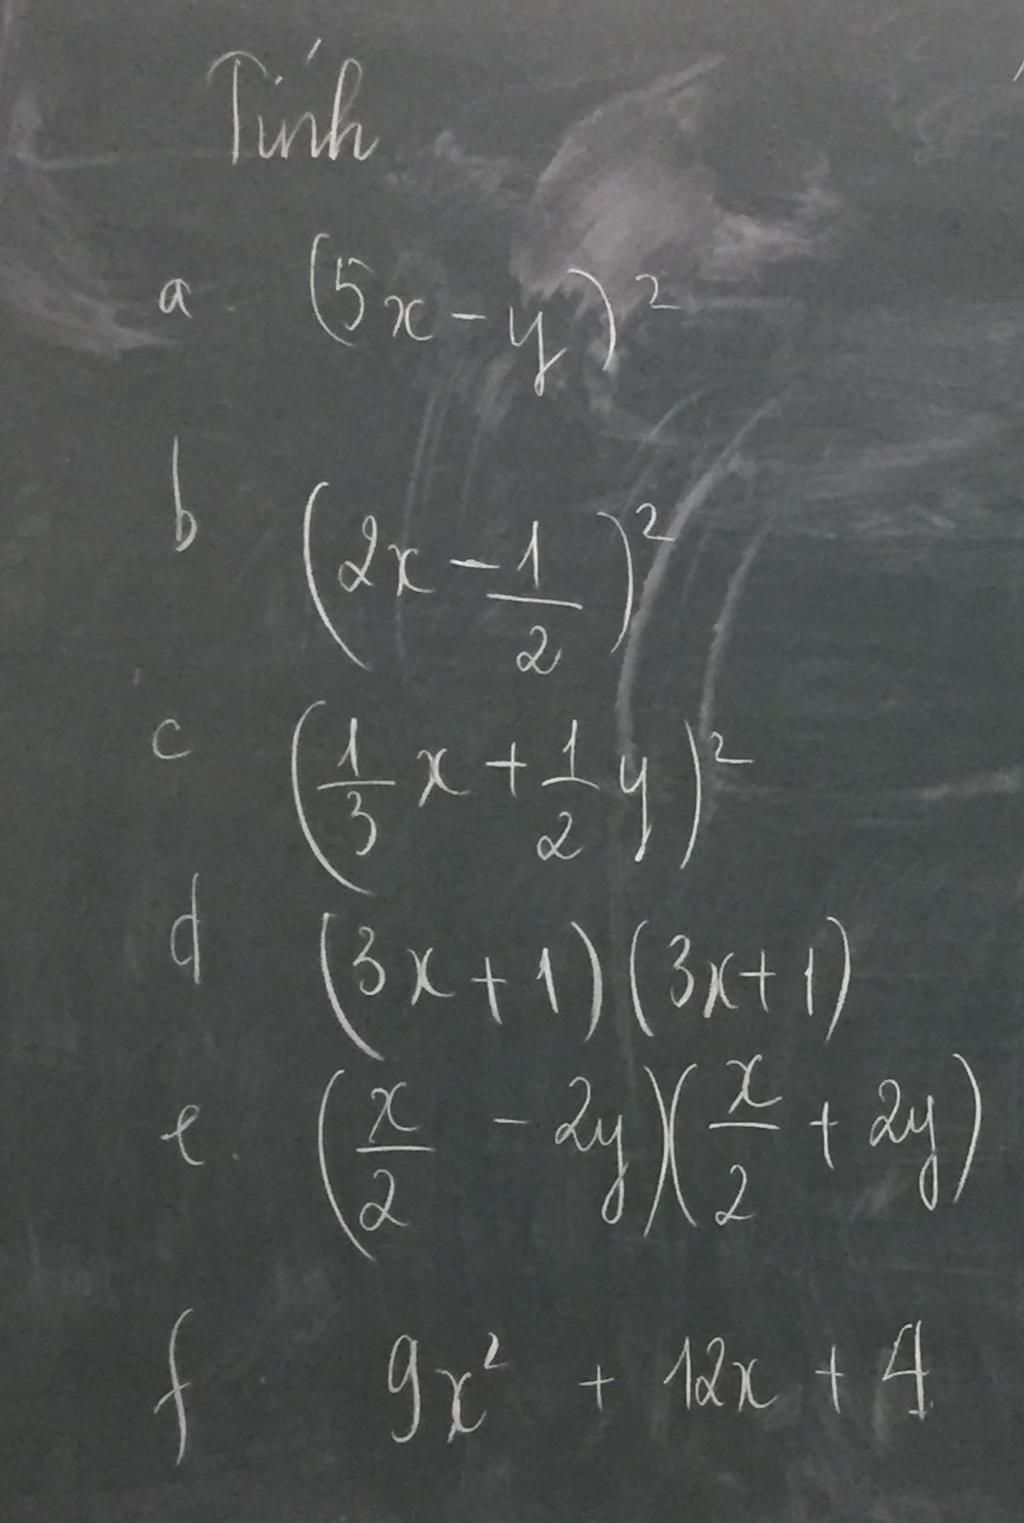 Tính
a (5x - y)²
b (2x - 1/2)²
c (1/3 x + 1/2 y)²
d (3x + 1)(3x + 1)
e. (x/2 - 2y)(x/2 + 2y)
f 9x² + 12x + 4